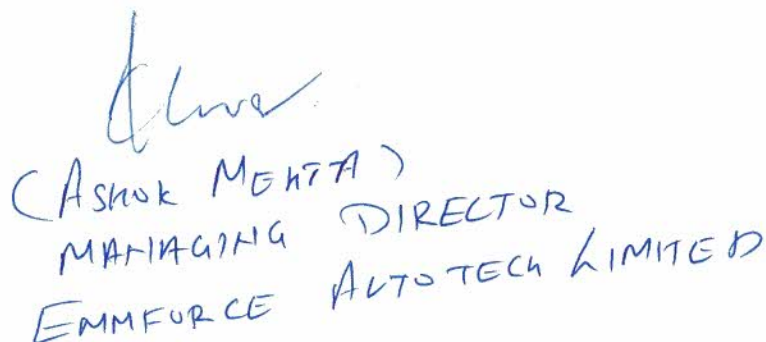 (ASHOK MEHTA)
MANAGING DIRECTOR
EMMFORCE AUTOTECH LIMITED